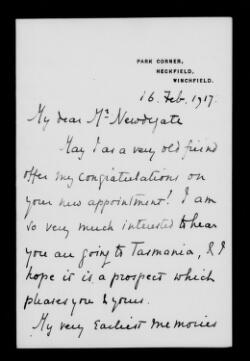 PARK CORNER,
HECKFIELD,
WINCHFIELD.
16. Feb. 1917.
My dear Mr Newdegate
May I as a very old friend
offer my congratulations on
your new appointment! I am
so very much interested to hear
you are going to Tasmania, & I
hope it is a prospect which
pleases you & yours.
My very Earliest memories